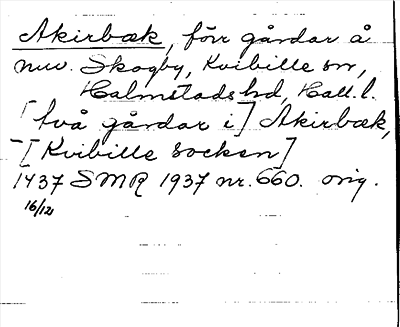 Akirbæk, förr gårdar å
nuv. Skogby, Kvibille sn,
Halmstads hd, Hall. l.
[två gårdar i] Akirbæk,
[Kvibille socken]
1437 SMR 1937 nr. 660. orig.
16/12